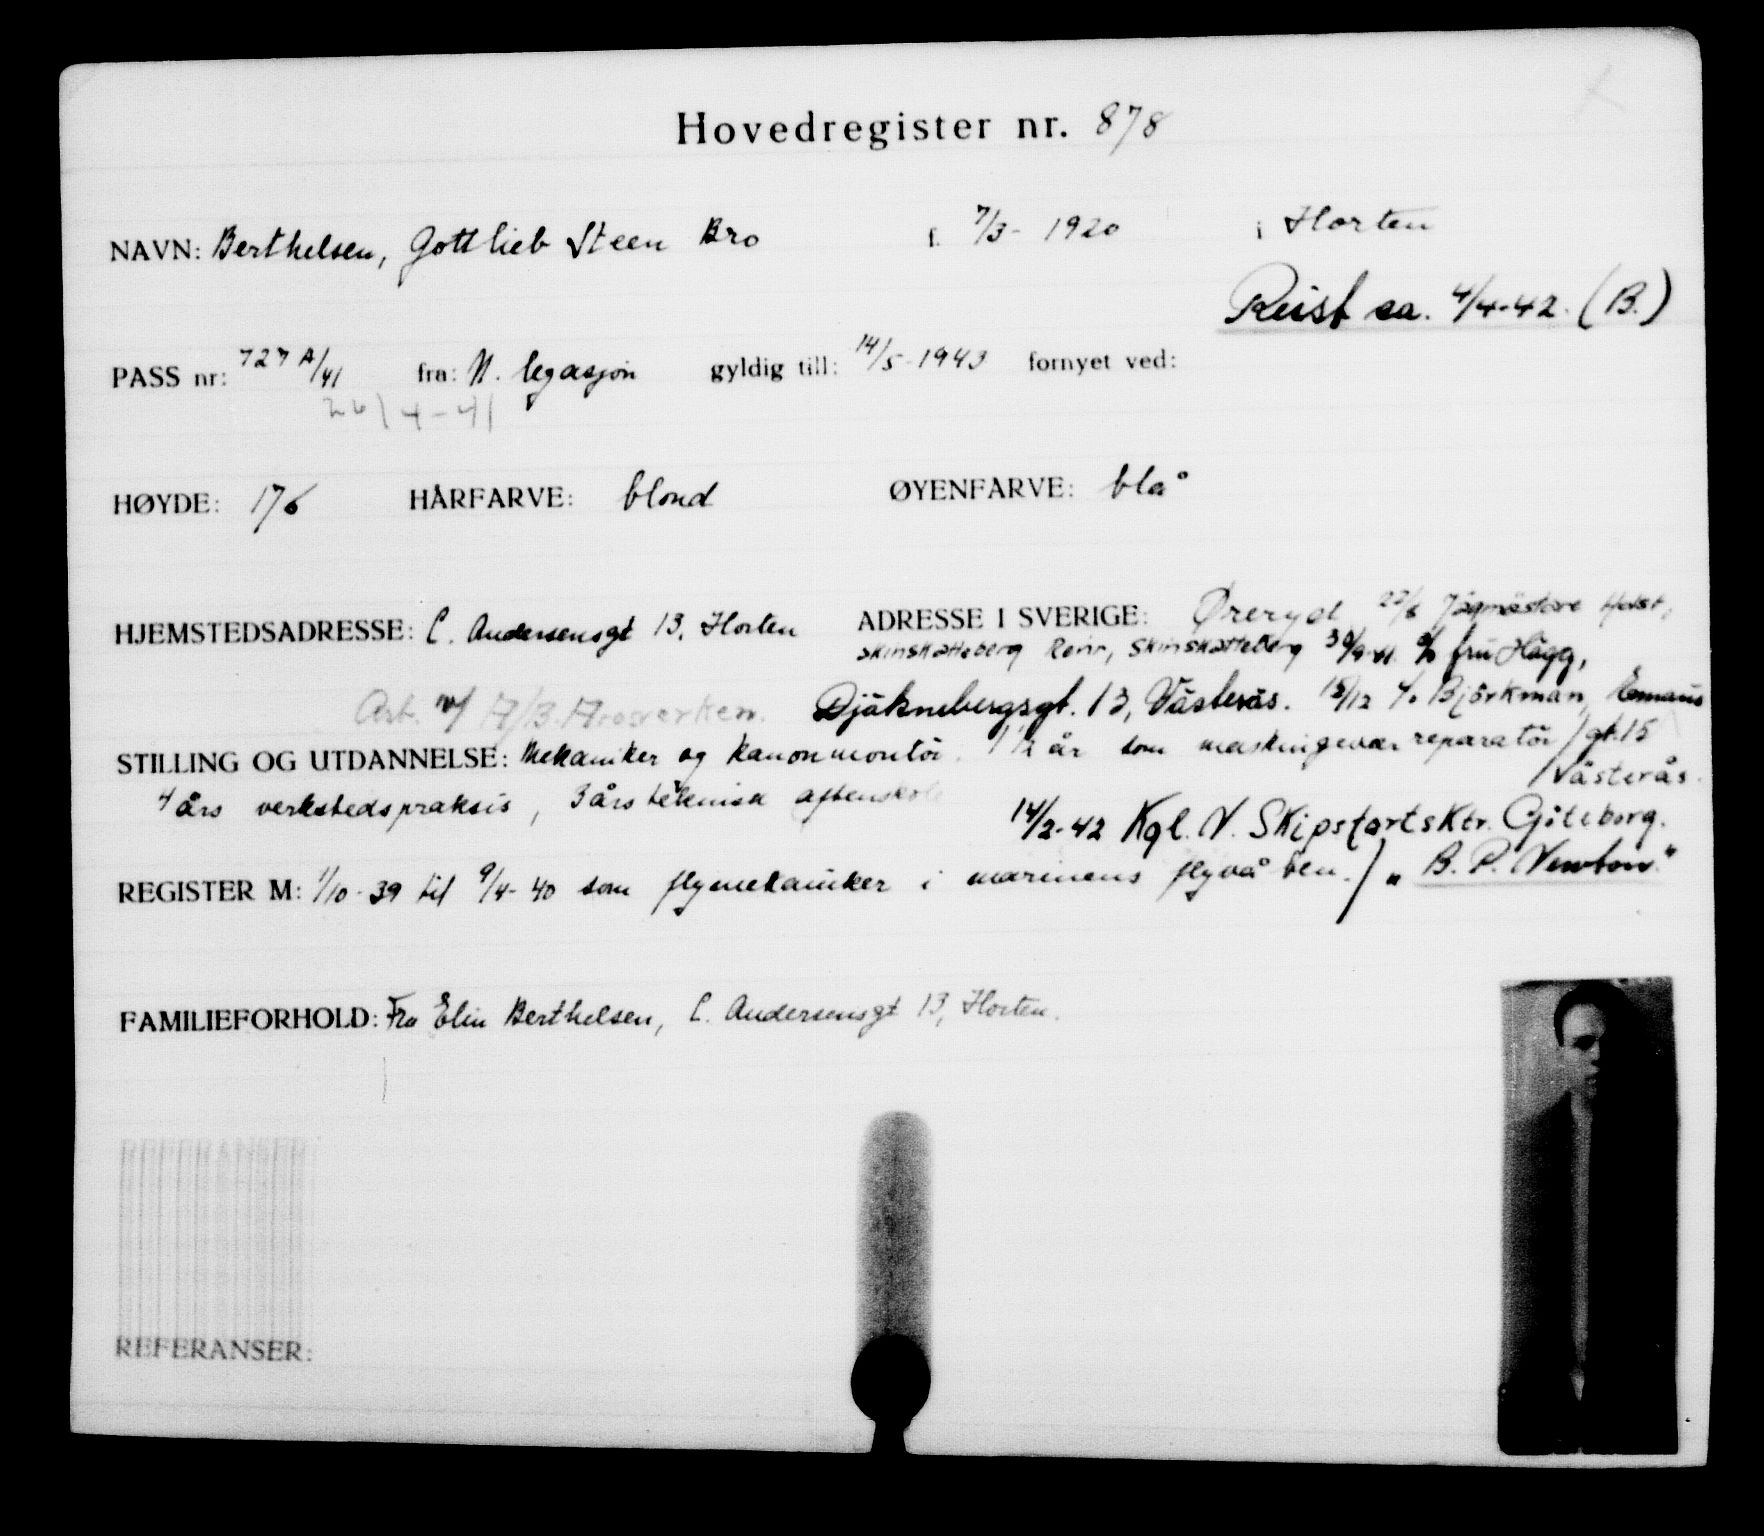 Hovedregister nr. 878
NAVN: Berthelsen, Gottlieb Steen Bro f. 7/3- 1920 i Horten
Reist sa. 4/4-42. (B.)
PASS nr: 727 A/41 fra: N. legasjon gyldig till: 14/5-1943 fornyet ved:
26/4-41
HØYDE: 176 HÅRFARVE: blond ØYENFARVE: blå
HJEMSTEDSADRESSE: C. Andersensgt 13, Horten ADRESSE I SVERIGE: Øreryd Jägmästare Holst,
Skinskatteberg Revir, Skinskatteberg 30/9-41 c/o fru Hägg,
Arb. v/ A/B. Arosverken. Djäknebergsgt. 13, Västerås. 15/12 c/o Björkman, Emaus
STILLING OG UTDANNELSE: Mekaniker og kanonmontör. 1 1/2 år som maskingevær reparatör / gt. 15
Västerås.
4 års verkstedspraksis, 3 års teknisk aftenskole
14/2-42 Kgl. N. Skipsfartsktr. Göteborg.
REGISTER M: 1/10-39 til 9/4-40 som flymekaniker i marinens flyvåben. / " B. P. Newton."
FAMILIEFORHOLD: Fra Elin Berthelsen, C. Andersensgt 13, Horten.
REFERANSER: